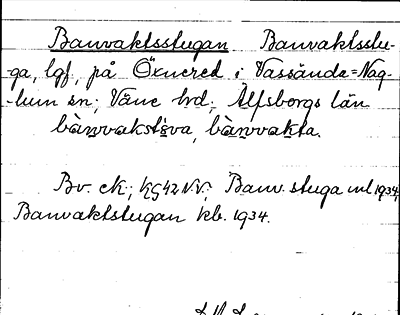 Banvaktsstugan Banvaktsstu-
ga, lgf, på Öxnered i Vassända-Nag-
-lum sn; Väne hd; Älfsborgs län
bànvakstùva, bànvakta.
Bv. ek; kg 42 NV; Banv. stuga ml 1934,
Banvaktstugan kb. 1934.